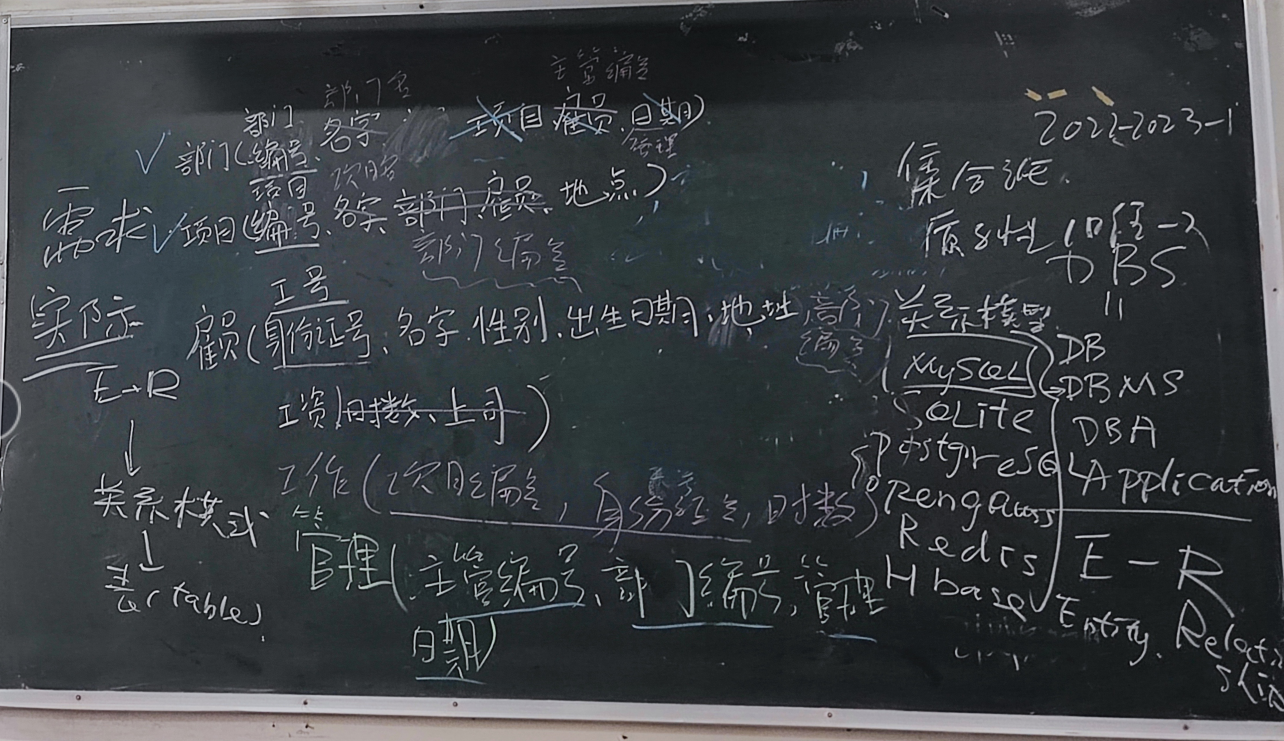 2022-2023-1
主管编号
部门名
部门
✓ 部门(编号、名字 项目 雇员 日期)
管理
项目 项目名
需求 ✓ 项目(编号、名字 部门、雇员、地点)
部门编号
实际
工号
雇员(身份证号、名字、性别、出生日期、地址、部门编号
工资、时数、上司)
工作(项目编号, 身份证号, 时数)
管理(主管编号、部门编号、管理
日期)
E→R
↓
关系模式
↓
表(table)
集合论
DBS
||
关系模型
MySQL
SQLite
PostgreSQL
OpenGauss
Redis
Hbase
DB
DBMS
DBA
Application
E-R
Entity.